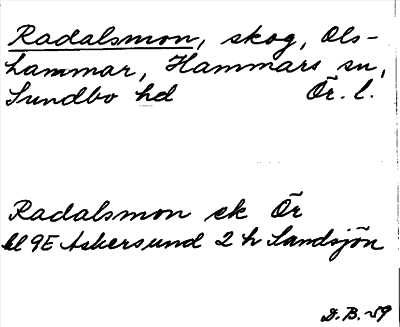 Radalsmon, skog, Ols-
hammar, Hammars sn,
Sundbo hd Ör. l.
Radalsmon ek Ör
bl 9E Askersund 2 h Sandsjön
D.B.-59